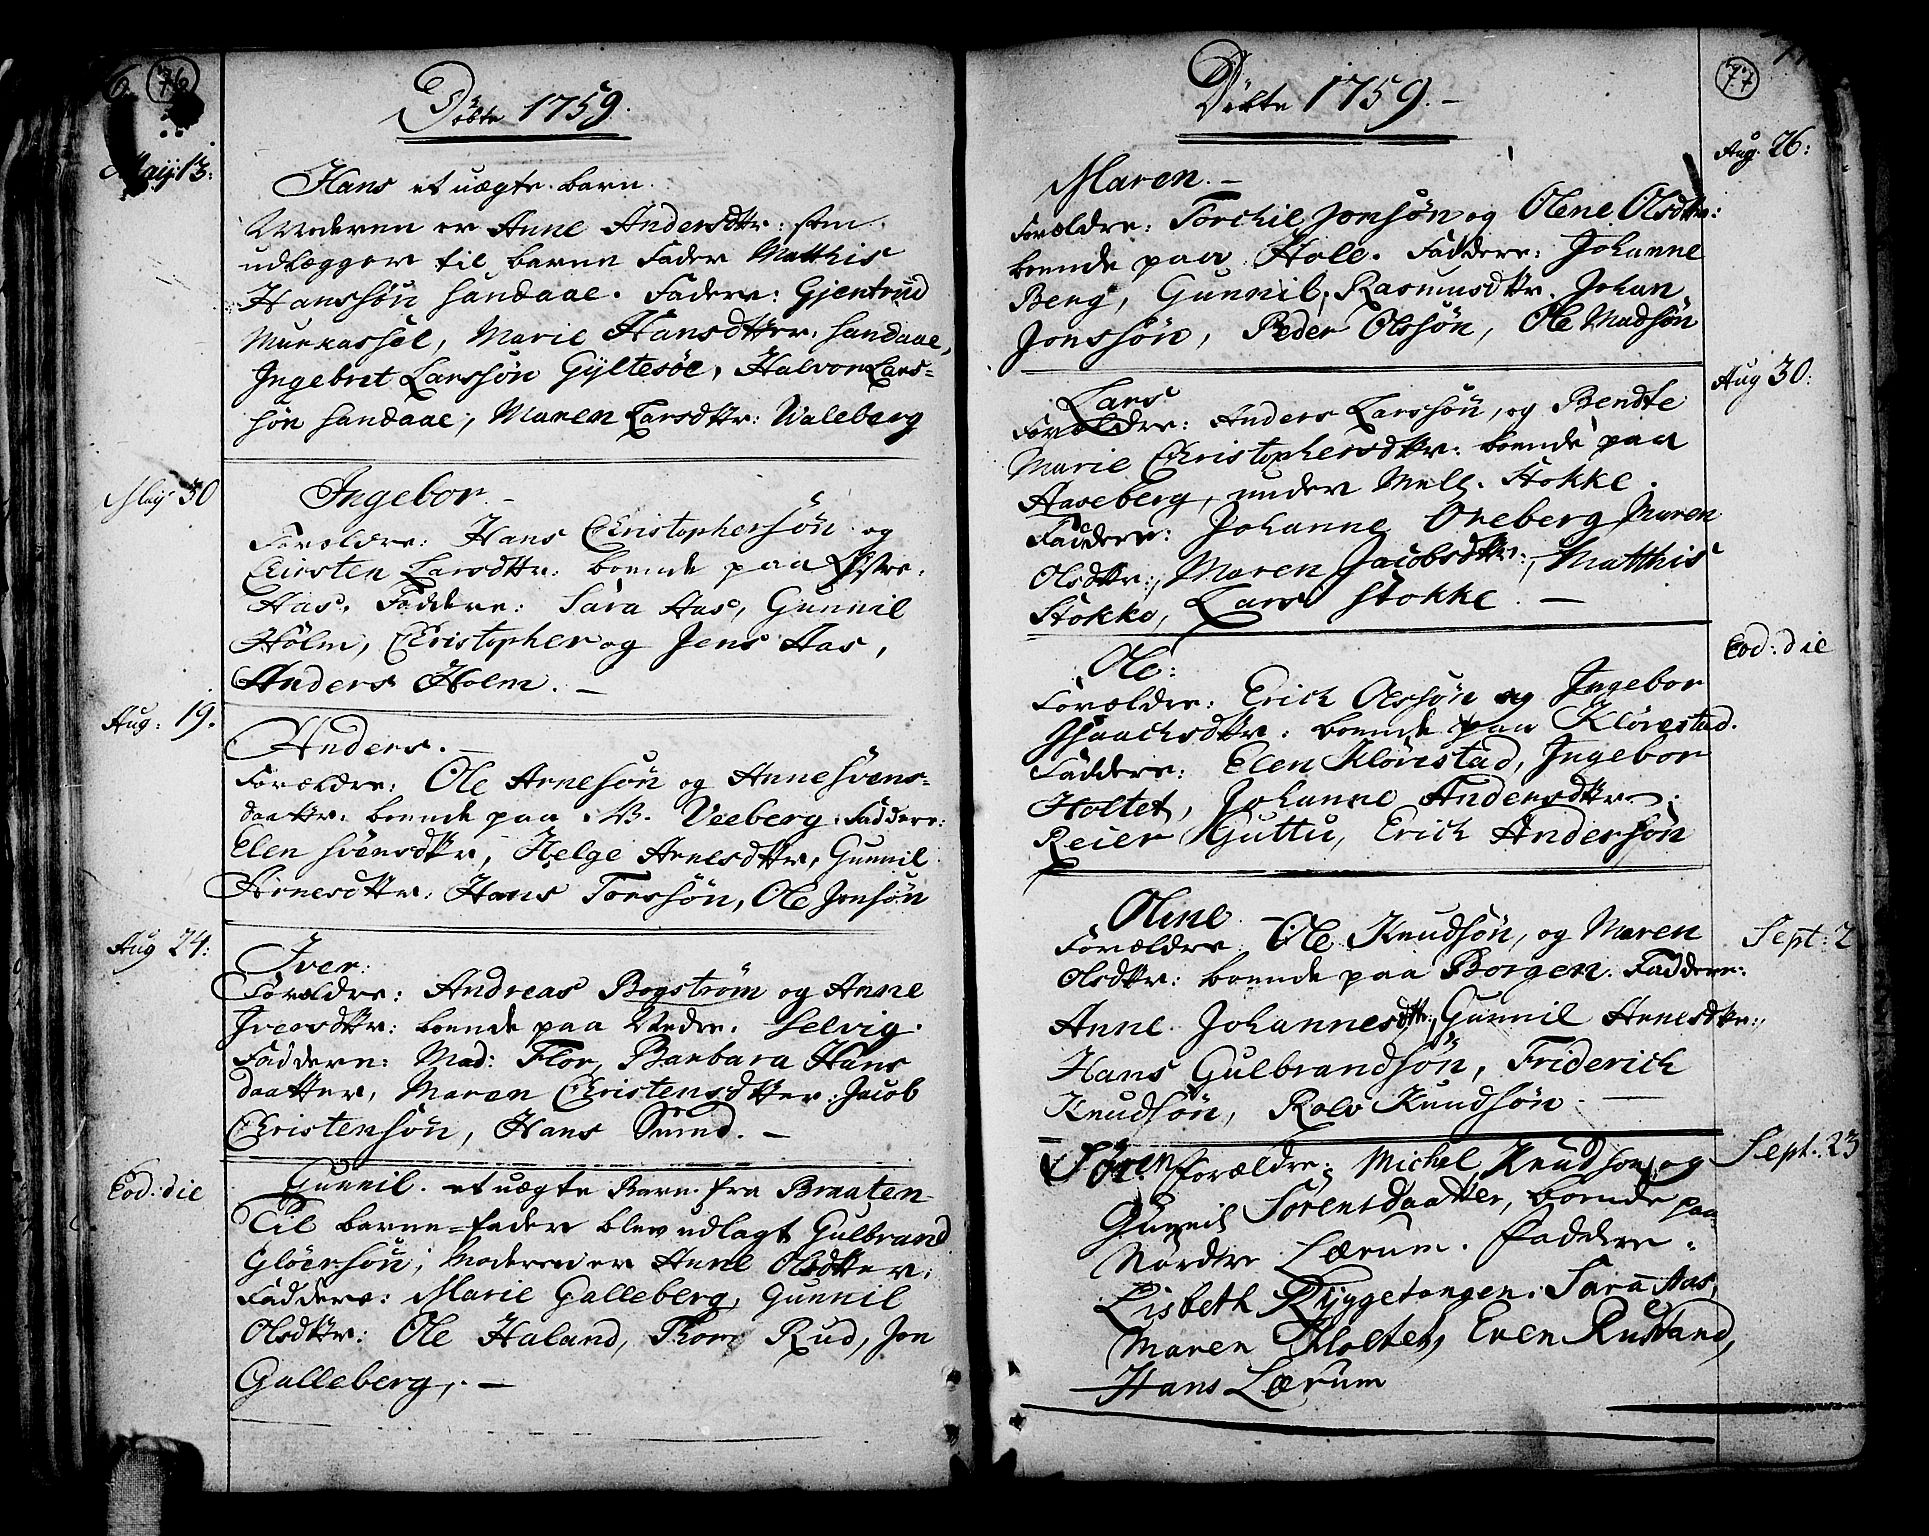 76
Döbte 1759.
Maij 13:
Hans et uægte barn.
Moderen er Anne Andersdttr: som
udlægger til barne Fader Matthis
Hanssøn Sandaae. Fadere: Gjertrud
Marie Hansdtter. Sandaae,
Ingebret Larssøn Gyltesøe, Halvor Lars-
søn Sandaae, Maren Larsdttr: Waleberg
Maij 30
Ingebor.
Forældre: Hans Christophersøn og
Kirsten Larsdttr: boende paa Østre
Aas. Faddere: Sara Aas, Gunnil
Holm, Christopher og Jens Aas,
Anders Holm. -
Aug: 19.
Anders. -
Forældre: Ole Arnesøn og Anne Svens-
daattr: boende paa W. Veeberg. Faddere:
Elen Svensdttr, Helge Arnesdttr, Gunnil
Arnesdttr: Hans Torssøn, Ole Jonsøn
Aug 24:
Iver:
Forældre: Andreas Bogstrøm og Anne
Iversdttr: boende paa Nedre Selvig.
Faddere: Mad: Flor, Barbara Hans
daatter, Maren Christensdtter. Jacob
Christensøn, Hans Smed. -
Eod: die
Gunnil. et uægte Barn fra Braaten
Til barne-fader blev udlagt Gulbrand
Gloersøn; Moderen er Anne Olsdtter.
Faddere: Marie Galleberg, Gunnil
Olsdttr: Ole Haland, Thor Rud, Jon
Galleberg,. -
77
Döbte 1759. -
Aug. 26:
Maren. -
Forældre: Torchil Jonsøn og Olene Olsdttr:
boende paa Holt. Faddere: Johanne
Berg, Gunnil Rasmusdttr. Johan
Jonssøn, Peder Olssøn, Ole Madsøn
Aug 30:
Lars
Forældre: Anders Larssøn, og Bendte
Marie Christophersdttr: boende paa
Aaseberg, under Mell. Stokke.
Faddere: Johanne Oreberg Maren
Olsdttr:, Maren Jacobsdttr:, Matthis
Stokke, Lars Stokke. -
Eod: die
Ole:
Forældre: Erich Olssøn og Ingebor
Isaachsdttr: boende paa Klørestad.
Faddere: Elen Klørestad, Ingebor
Holtet, Johanne Andersdttr.
Reier Guttu, Erich Andersøn
Sept: 2
Oline. -
Forældre: Ole Knudsøn, og Maren
Olsdttr: boende paa Borgen. Faddere:
Anne Johannesdtr:, Gunnil Arnesdttr:,
Hans Gulbrandsøn, Friderich
Knudsøn, Rolv Knudsøn. -
Sept. 23
Søren Forældre: Michel Knudsøn, og
Gunnil Sørensdaatter, boende paa
Nordre Lærum. Faddere:
Lisbeth Ryggetangen. Sara Aas,
Maren Holtet, Even Rustand,
Hans Lærum